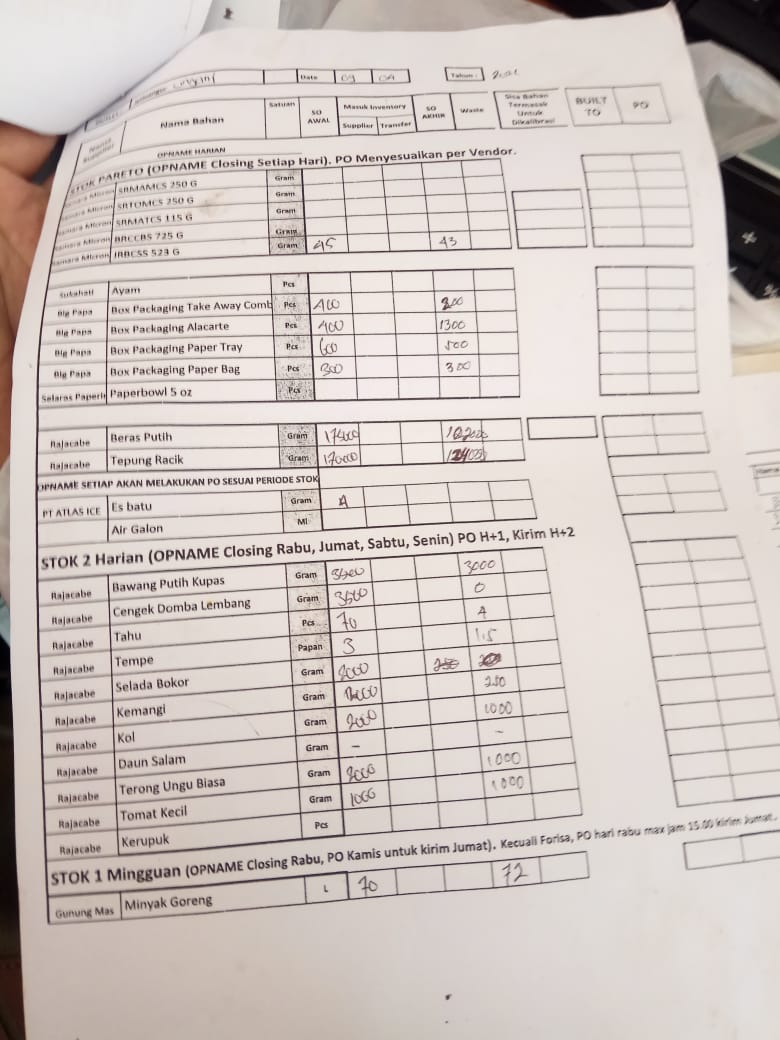 Date 09 09 Tahun :
Nama Supplier Nama Bahan Satuan SO AWAL Masuk Inventory Supplier Transfer SO AKHIR Waste Sisa Bahan Termasak Untuk Dikalibrasi BUILT TO PO
OPNAME HARIAN
STOK PARETO (OPNAME Closing Setiap Hari). PO Menyesuaikan per Vendor.
SRMAMCS 250 G Gram
SRTOMCS 250 G Gram
SRMATCS 115 G Gram
BRCCBS 725 G Gram
IRBCSS 523 G Gram 45 43
Sukahati Ayam Pcs
Big Papa Box Packaging Take Away Comb Pcs 400 200
Big Papa Box Packaging Alacarte Pcs 400 1300
Big Papa Box Packaging Paper Tray Pcs 600 500
Big Papa Box Packaging Paper Bag Pcs 300 300
Selaras Paperin Paperbowl 5 oz Pcs
Rajacabe Beras Putih Gram
Rajacabe Tepung Racik Gram 17000
OPNAME SETIAP AKAN MELAKUKAN PO SESUAI PERIODE STOK
PT ATLAS ICE Es batu Gram 4
Air Galon Ml
STOK 2 Harian (OPNAME Closing Rabu, Jumat, Sabtu, Senin) PO H+1, Kirim H+2
Rajacabe Bawang Putih Kupas Gram 3500 3000
Rajacabe Cengek Domba Lembang Gram 3500 0
Rajacabe Tahu Pcs 70 4
Rajacabe Tempe Papan 3 1.5
Rajacabe Selada Bokor Gram 2000 250
Rajacabe Kemangi Gram 250
Rajacabe Kol Gram 2000 1000
Rajacabe Daun Salam Gram - -
Rajacabe Terong Ungu Biasa Gram 2000 1000
Rajacabe Tomat Kecil Gram 1000 1000
Rajacabe Kerupuk Pcs
STOK 1 Mingguan (OPNAME Closing Rabu, PO Kamis untuk kirim Jumat). Kecuali Forisa, PO hari rabu max jam 15.00 kirim Jumat.
Gunung Mas Minyak Goreng L 70 72